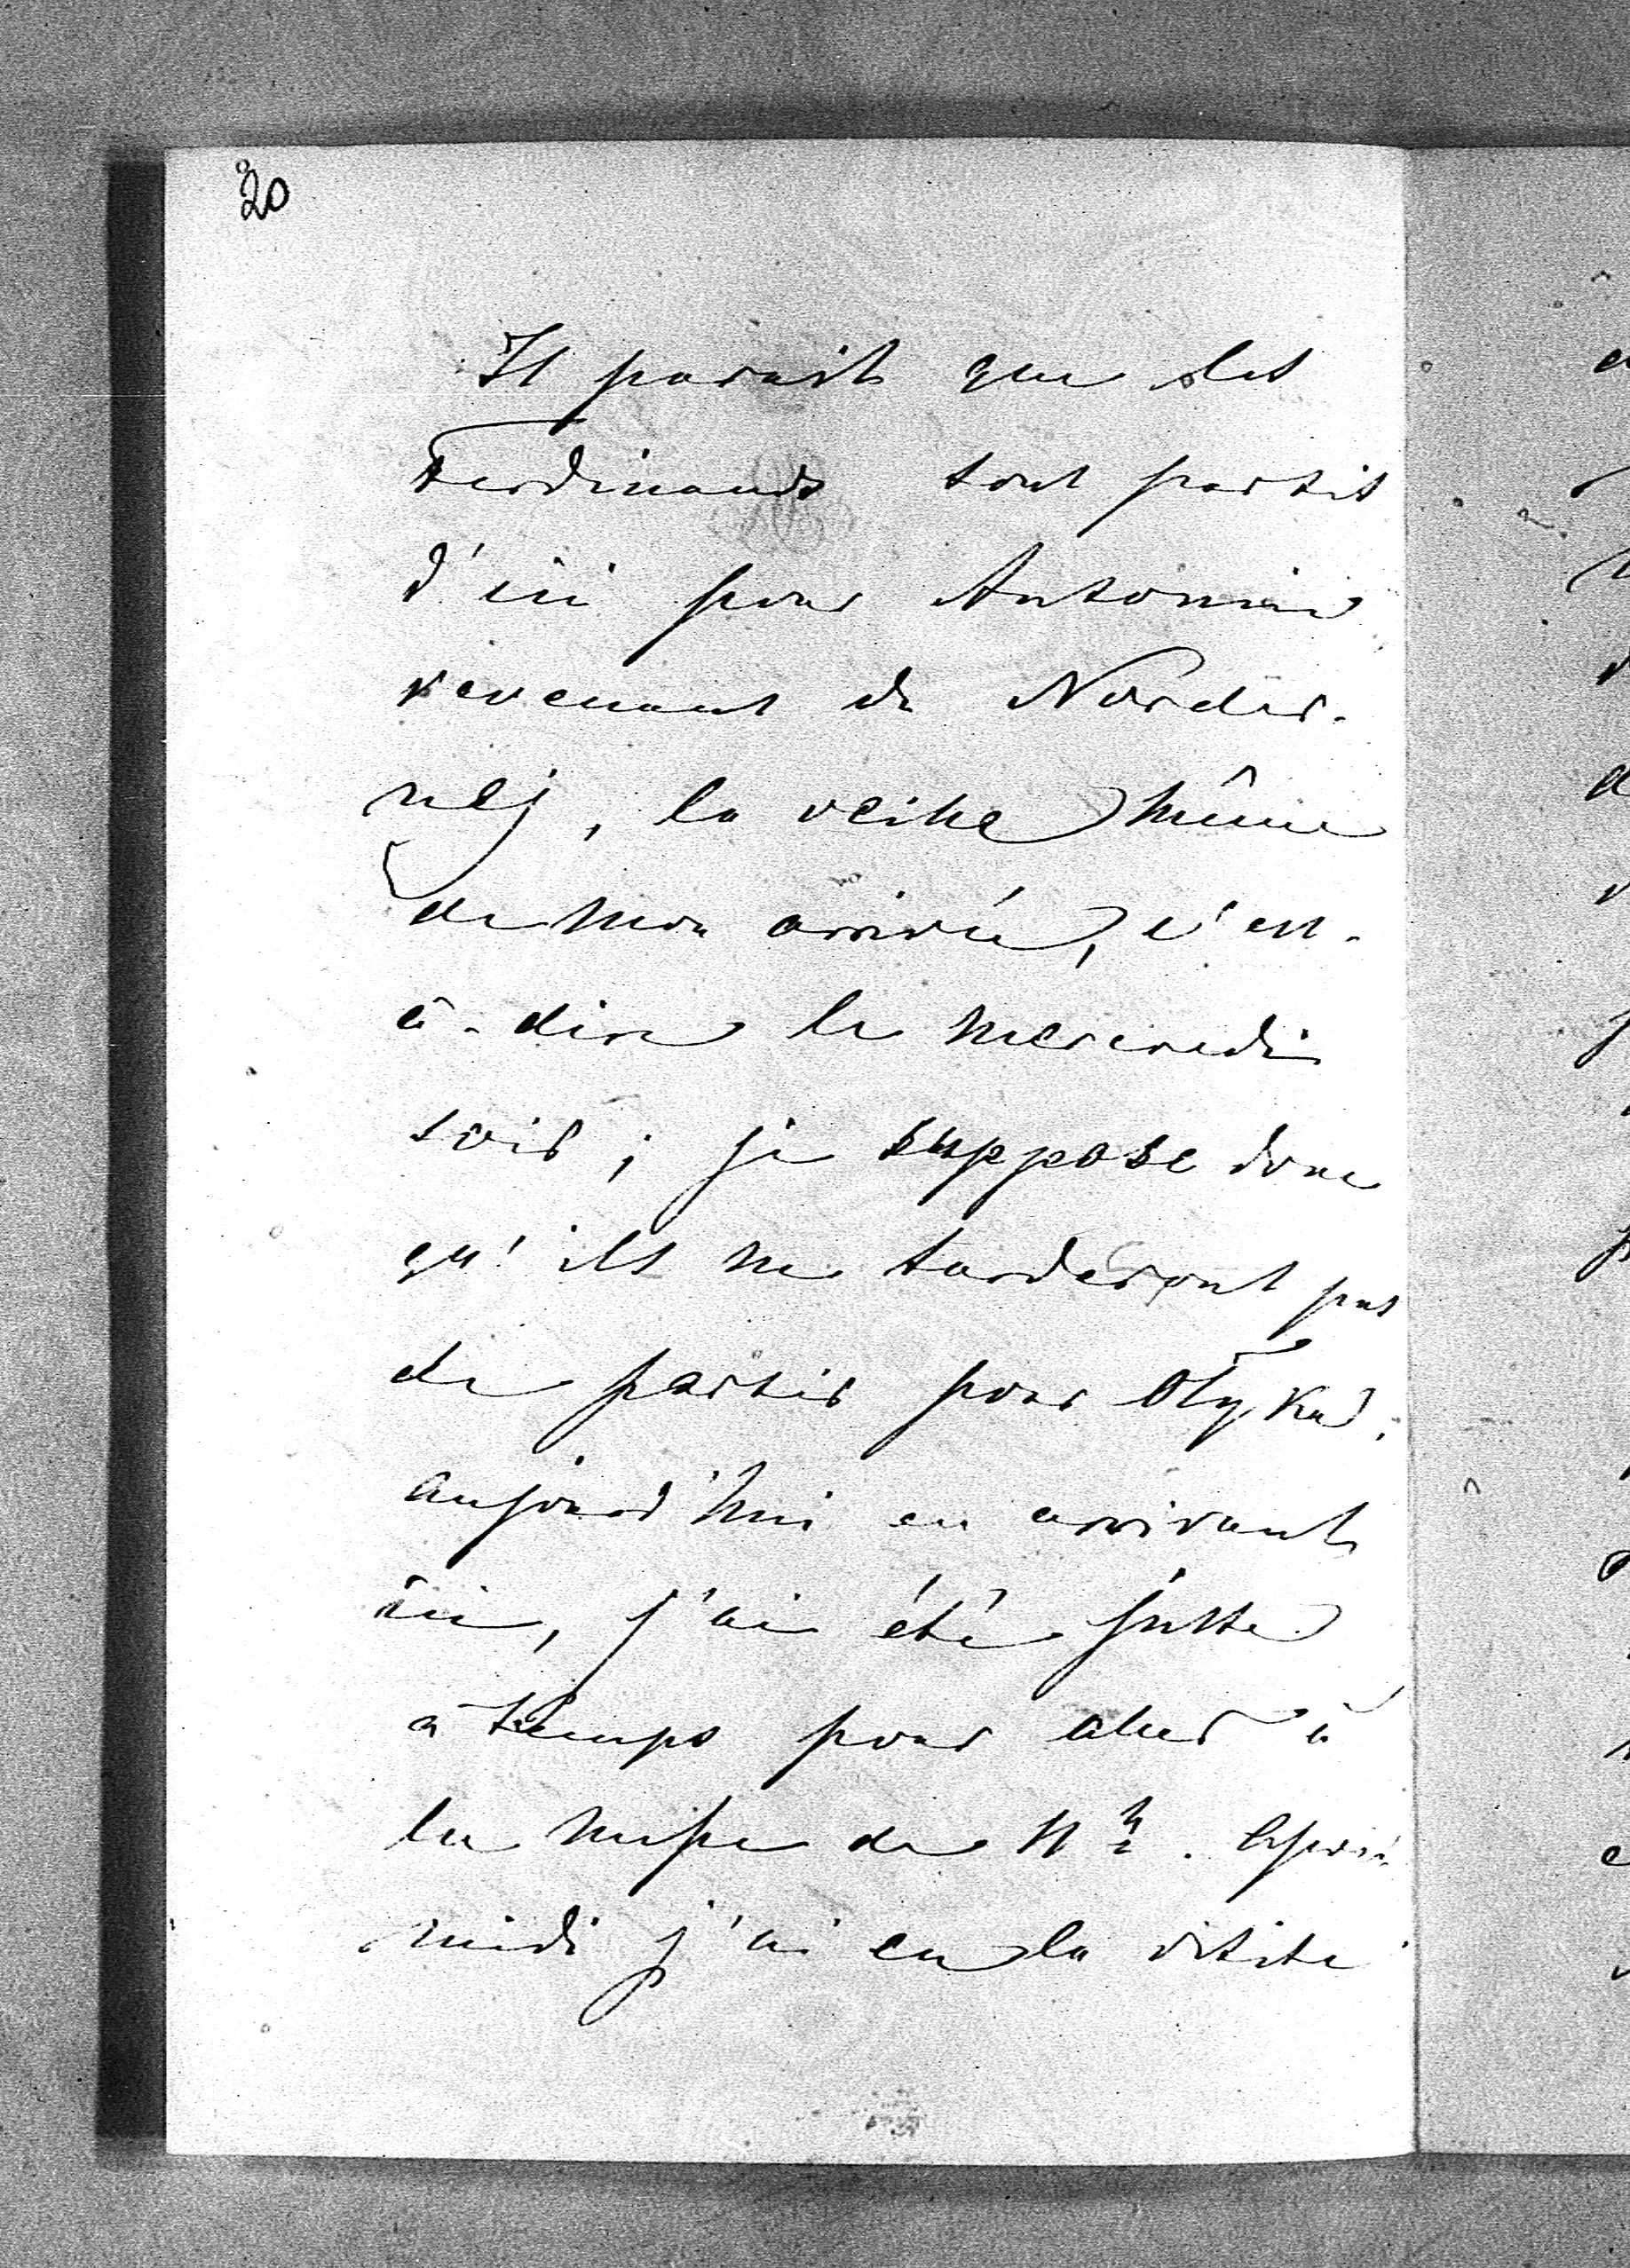 20
Il parait que les
Ferdinands sont partis
d'ici pour Antonin
revenant de Norder-
nej, la veille même
de mon arrivée, c'est-
à-dire le mercredi
soir; je suppose donc
qu'ils ne tarderont pas
de partir pour Olyka;
aujourd'hui en arrivant
ici, j'ai été juste
à temps pour aller à
la messe de 11 h/2. Après-
midi j'ai eu la visite